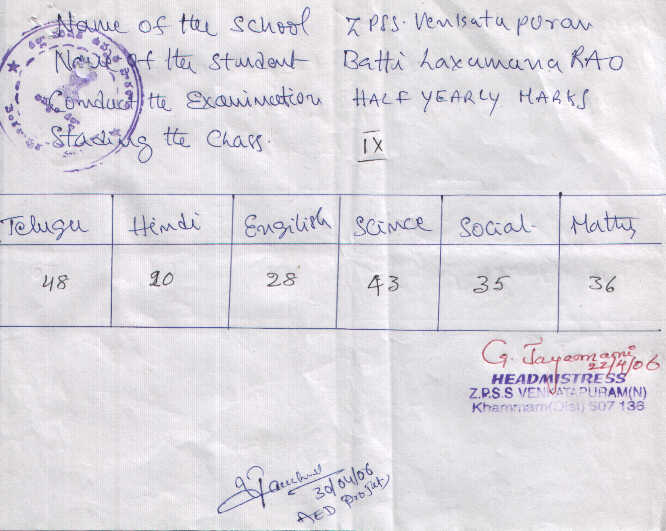 Name of the School ZPSS. Venkatapuram
Name of the Student Batti Laxumana RAO
Conduct the Examination HALF YEARLY MARKS
Studing the Chass. IX
Telugu Hindi Engilish Scince Social. Maths
48 20 28 43 35 36
G. Jayamani
22/4/06
HEADMISTRESS
Z.P.S.S VENKATAPURAM(N)
Khammam(Dist) 507 136
30/04/06
AED Projut